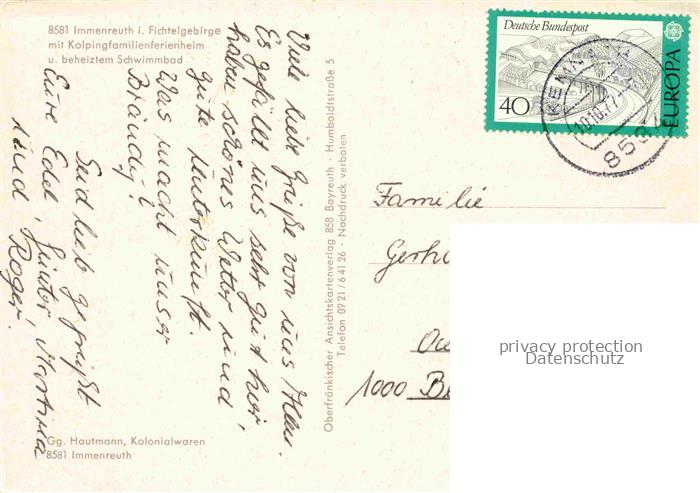 8581 Immenreuth i. Fichtelgebirge
mit Kolpingfamilienferienheim
u. beheiztem Schwimmbad
Viele liebe Grüße von uns Allen.
Es gefällt uns sehr gut hier,
haben schönes Wetter und
gute Unterkunft.
Was macht unser
Brändy?
Seid lieb gegrüßt
Eure Edel, Günter, Martina
und Roger.
Gg. Hautmann, Kolonialwaren
8581 Immenreuth
Oberfränkischer Ansichtskartenverlag 858 Bayreuth · Humboldtstraße 5
Telefon 0921/64126 · Nachdruck verboten
Deutsche Bundespost
40
EUROPA
KEMNATH
10.10.77
Familie
Gerh
1000 B
privacy protection
Datenschutz